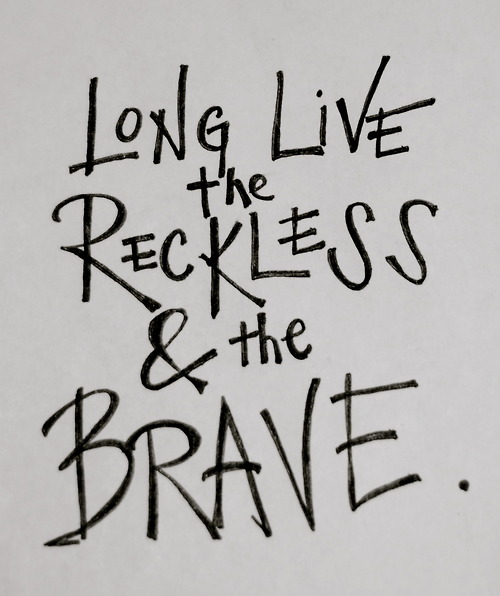 LONG LiVE
the
RECKLESS
& the
BRAVE.